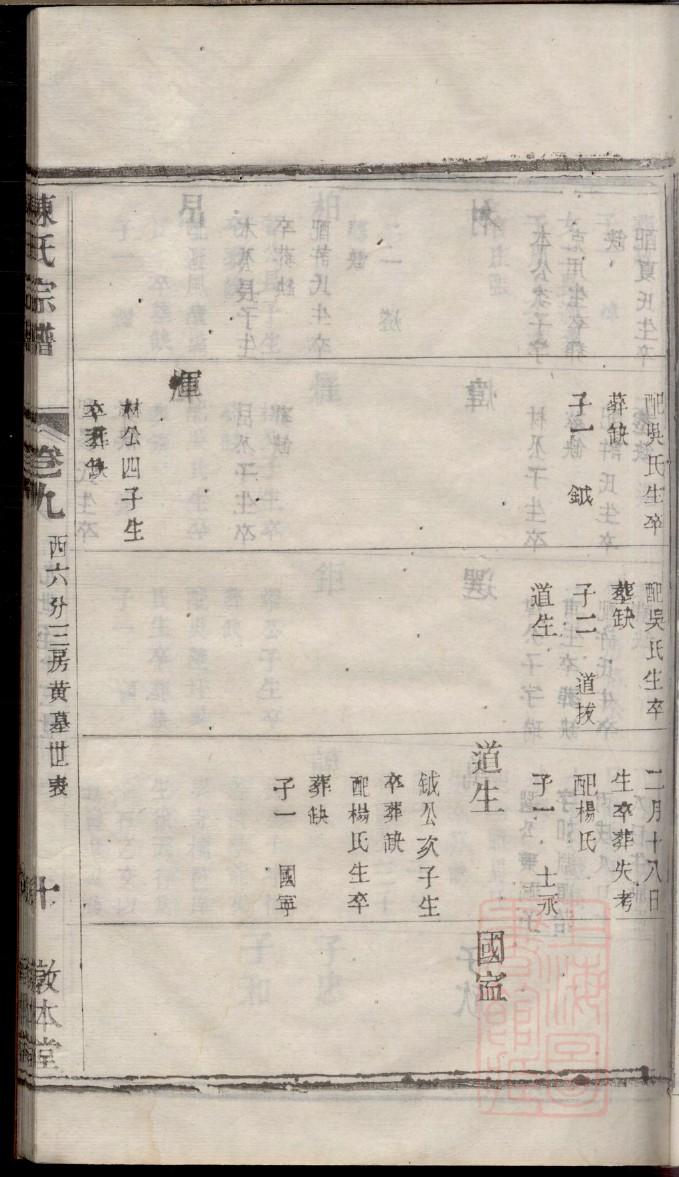 配吳氏生卒
葬缺
子一　鉞
煇
林公四子生
卒葬缺
配吳氏生卒
葬缺
子二　道拔
道生
二月十八日
生卒葬失考
配楊氏
子一　士永
道生
鉞公次子生
卒葬缺
配楊氏生卒
葬缺
子一　國寧
國寍
陳氏宗譜
卷九
西六分三房黄墓世表
十
敦本堂